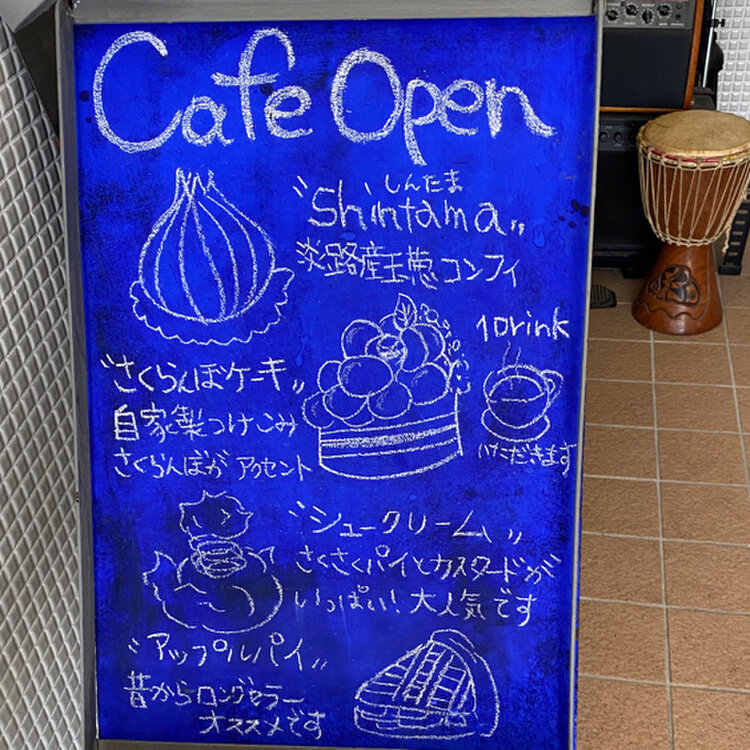 Cafe Open
しんたま
"Shintama"
淡路産玉葱コンフィ
1Drink
いただきます
"さくらんぼケーキ"
自家製つけこみ
さくらんぼが アクセント
"シュークリーム"
さくさくパイとカスタードが
いっぱい! 大人気です
"アップルパイ"
昔からロングセラー
オススメです